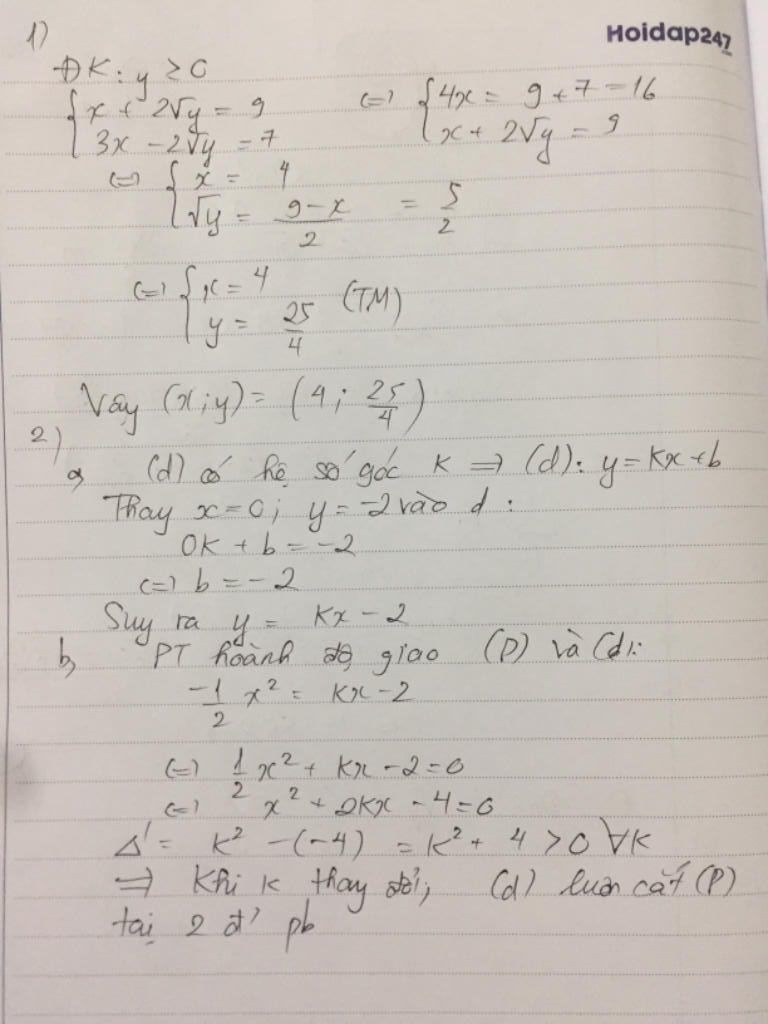 1)
Hoidap247
ĐK: y ≥ 0
{ x + 2√y = 9
3x - 2√y = 7
(=) { 4x = 9 + 7 = 16
x + 2√y = 9
(=) { x = 4
√y = (9-x)/2 = 5/2
(=) { x = 4
y = 25/4 (TM)
Vậy (x; y) = (4; 25/4)
2)
a, (d) có hệ số góc K => (d): y = Kx + b
Thay x = 0; y = -2 vào d:
0K + b = -2
(=) b = -2
Suy ra y = Kx - 2
b, PT hoành độ giao (P) và (d):
-1/2 x² = Kx - 2
(=) 1/2 x² + Kx - 2 = 0
(=) x² + 2Kx - 4 = 0
Δ' = K² - (-4) = K² + 4 > 0 ∀K
=> Khi K thay đổi, (d) luôn cắt (P)
tại 2 đ' pb